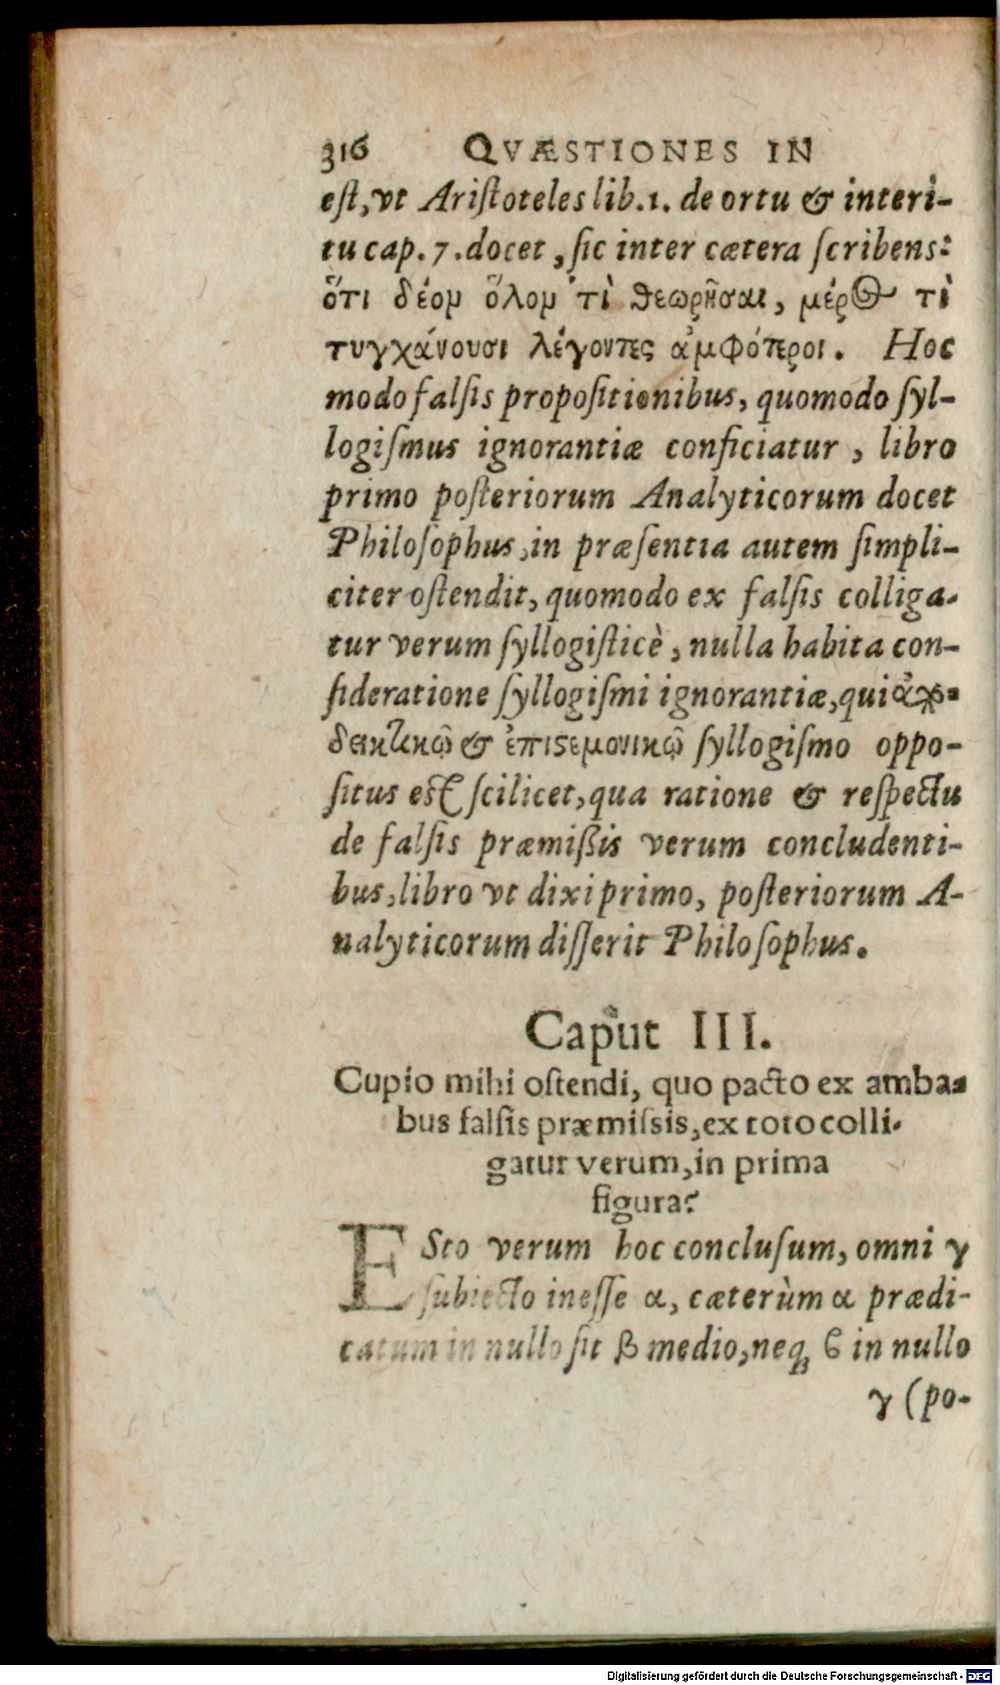 316 QVÆSTIONES IN
eſt,vt Ariſtoteles lib.1. de ortu & interi-
tu cap. 7. docet, ſic inter cætera ſcribens:
ὅτι δέομ ὅλομ τὶ θεωρῆσαι, μέρος τὶ
τυγχάνουσι λέγοντες ἀμφότεροι. Hoc
modo falſis propoſitionibus, quomodo ſyl-
logiſmus ignorantiæ conficiatur, libro
primo poſteriorum Analyticorum docet
Philoſophus,in præſentia autem ſimpli-
citer oſtendit, quomodo ex falſis colliga-
tur verum ſyllogiſticè, nulla habita con-
ſideratione ſyllogiſmi ignorantiæ,qui ἀπο-
δεικτικῷ & ἐπιστεμονικῷ ſyllogiſmo oppo-
ſitus eſt ſcilicet,qua ratione & reſpectu
de falſis præmißis verum concludenti-
bus,libro vt dixi primo, poſteriorum A-
nalyticorum diſſerit Philoſophus.
Caput III.
Cupio mihi oſtendi, quo pacto ex amba-
bus falſis præmiſsis,ex toto colli-
gatur verum,in prima
figura?
ESto verum hoc concluſum, omni γ
ſubiecto ineſſe α, cæterùm α prædi-
catum in nullo ſit β medio,neq; ϐ in nullo
γ (po-
Digitalisierung gefördert durch die Deutsche Forschungsgemeinschaft - DFG